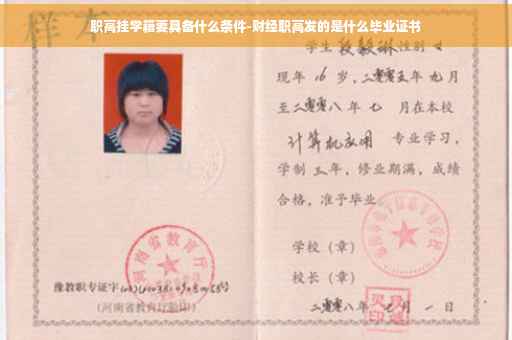 职高挂学籍要具备什么条件-财经职高发的是什么毕业证书
样本
学生 段毅琳 性别 女
现年 16 岁，二零零五年 九月
至二零零八年 七 月在本校
计算机应用 专业学习，
学制 三 年，修业期满，成绩
合格，准予毕业
学校（章）
校长（章）
河南省教育厅
豫教职专证字
(河南省教育厅验印)
二零零八年 七 月 一 日